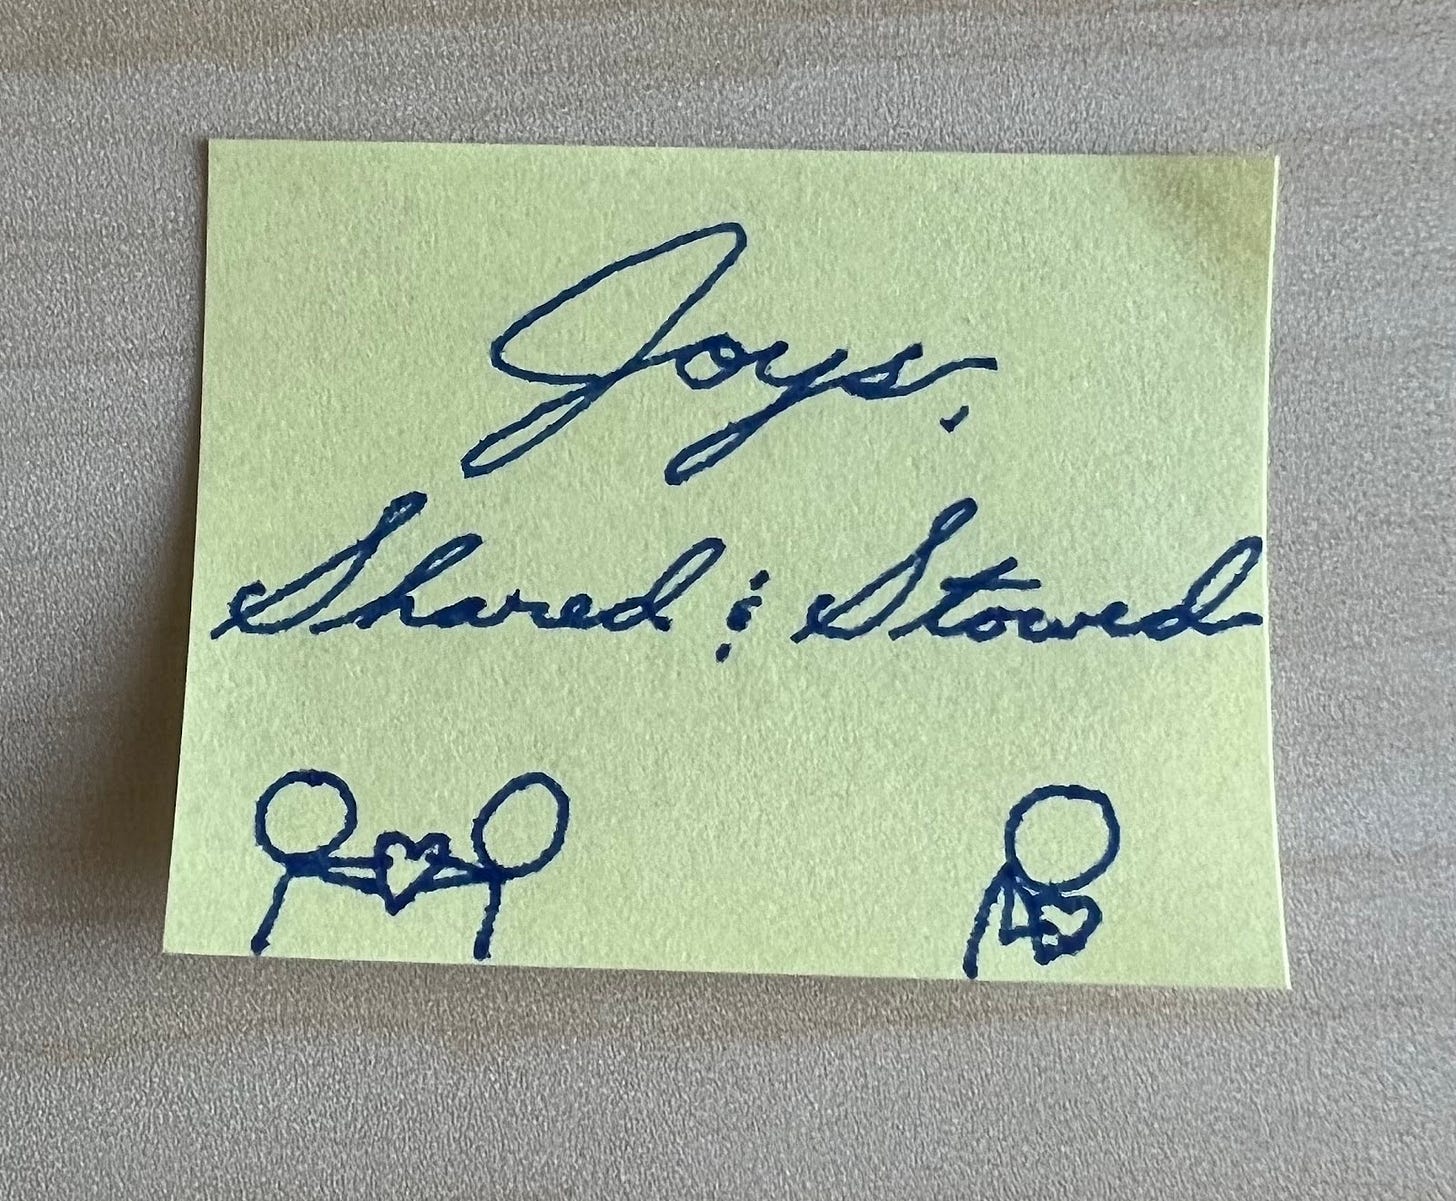 Joys,
Shared & Stowed